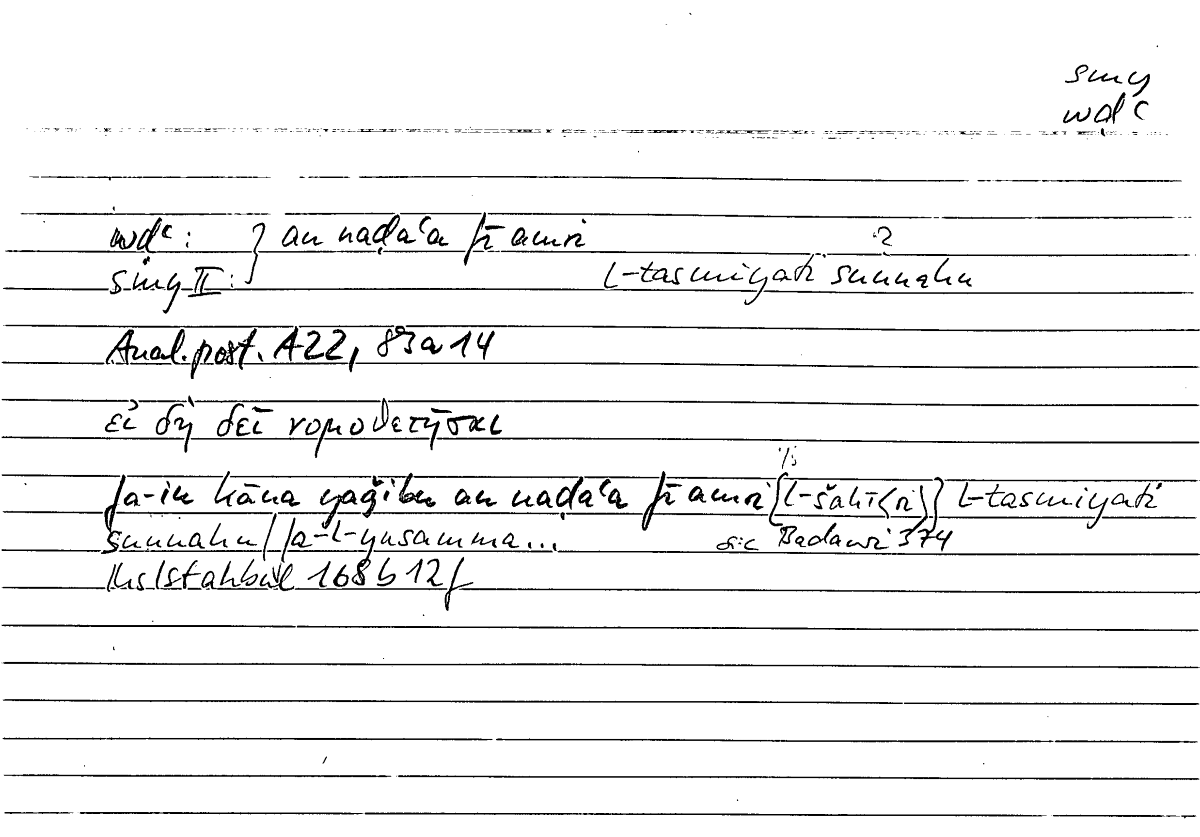 smy
wḍʿ
wḍʿ: } an naḍaʿa fī amri ?
smy II: l-tasmiyati sunnahu
Anal. post. A22, 83a14
εἰ δὴ δεῖ νομοθετῆσαι
fa-in kāna yaǧibu an naḍaʿa fī amri [l-šahī(ri)] l-tasmiyati
sunnahu / fa-l-yusamma... sic Badawi 374
Hs Istanbul 168b12f